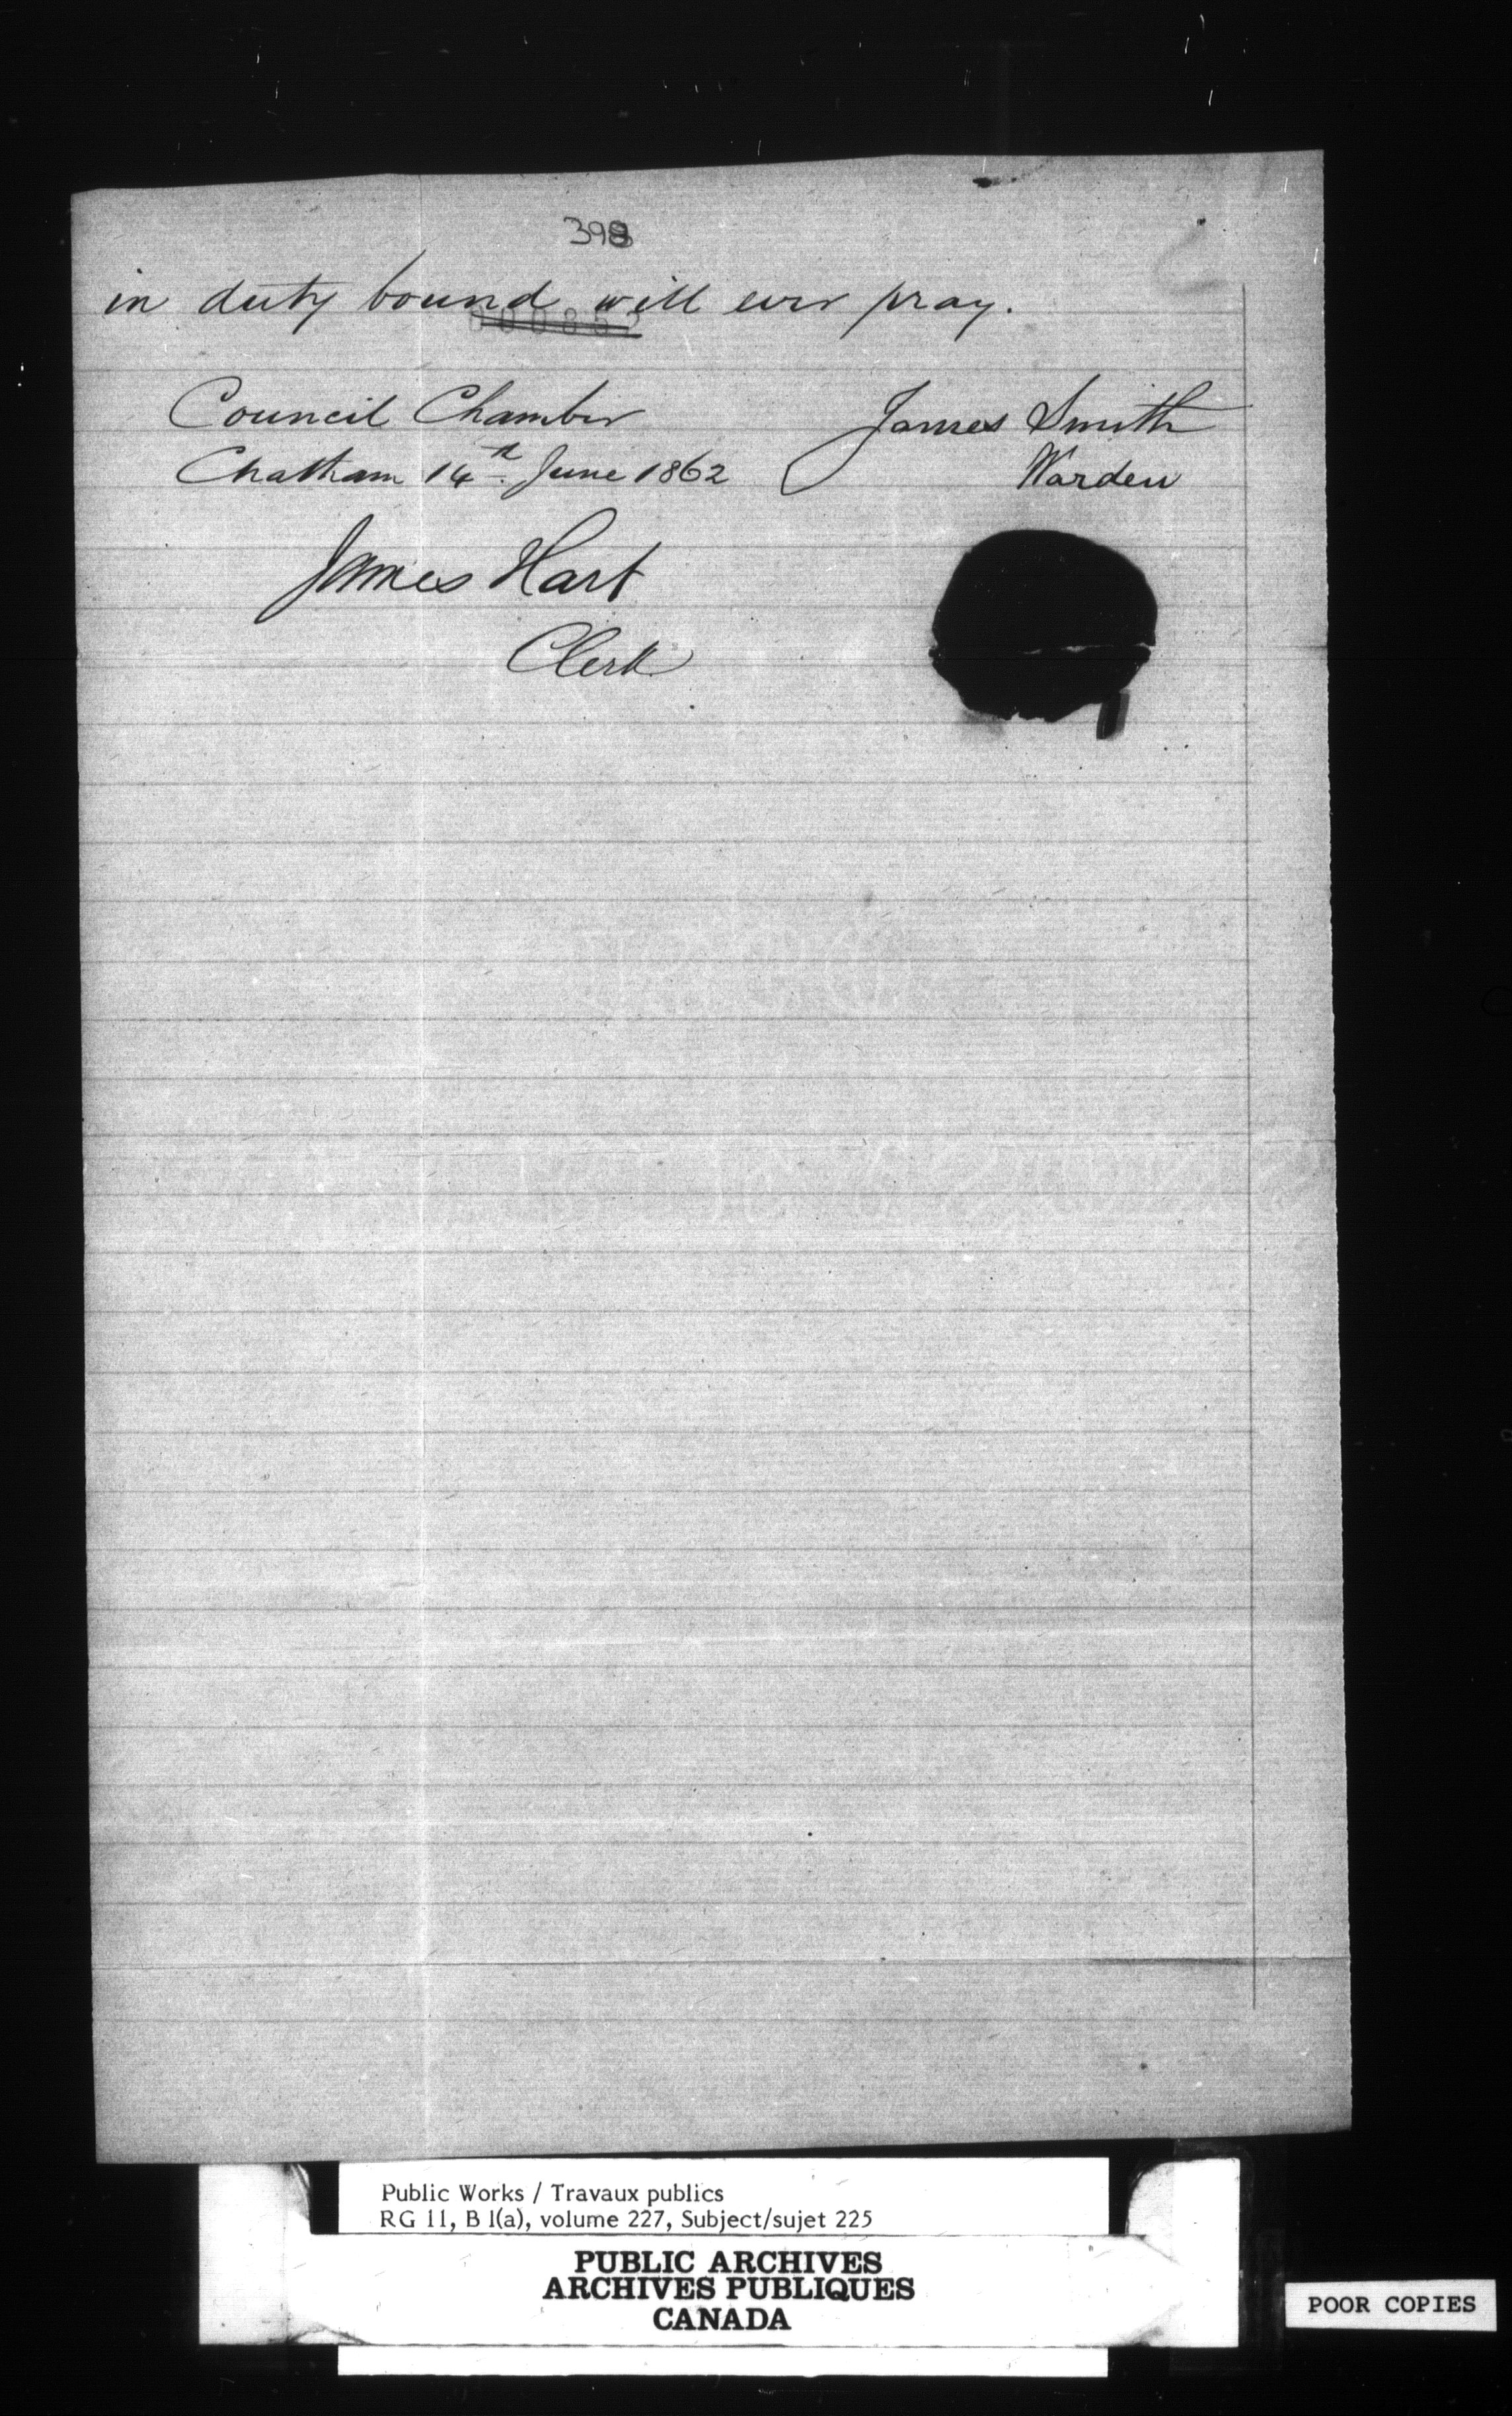 398
in duty bound will ever pray.
000862
Council Chamber James Smith
Chatham 14th June 1862 Warden
James Hart
Clerk
Public Works / Travaux publics
RG 11, B 1(a), volume 227, Subject/sujet 225
PUBLIC ARCHIVES
ARCHIVES PUBLIQUES
CANADA
POOR COPIES